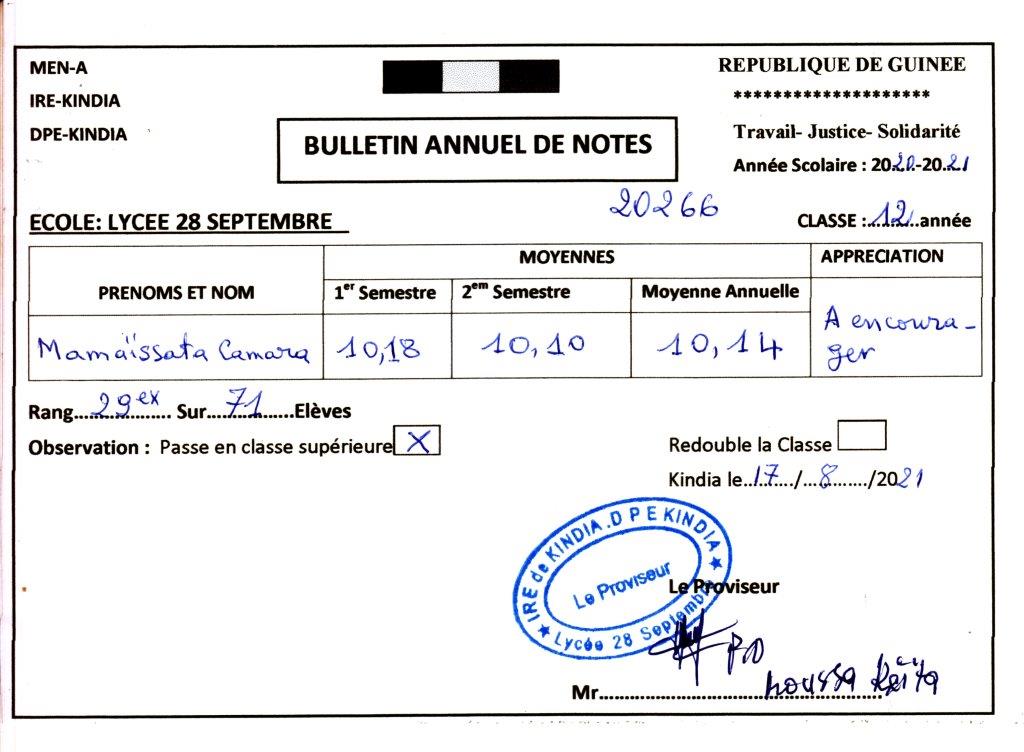 MEN-A
REPUBLIQUE DE GUINEE
IRE-KINDIA
********************
DPE-KINDIA
Travail- Justice- Solidarité
BULLETIN ANNUEL DE NOTES
Année Scolaire : 2020-2021
20266
ECOLE: LYCEE 28 SEPTEMBRE
CLASSE :..12..année
MOYENNES
APPRECIATION
PRENOMS ET NOM
1er Semestre
2em Semestre
Moyenne Annuelle
Mamaïssata Camara
10,18
10,10
10,14
A encoura-
ger
Rang...29ex... Sur...71...Elèves
Observation : Passe en classe supérieure X
Redouble la Classe
Kindia le..17../..8../2021
IRE de KINDIA.DPE KINDIA
Le Proviseur
Lycée 28 Septembre
Le Proviseur
PO
Mr.......... Moussa Keïta